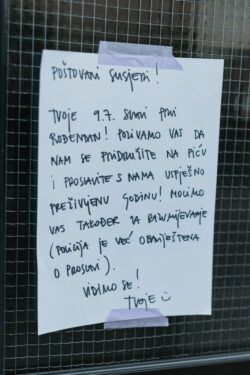 POŠTOVANI SUSJEDI!
TVOJE 9.7. SLAVI PRVI
ROĐENDAN! POZIVAMO VAS DA
NAM SE PRIDRUŽITE NA PIĆU
I PROSLAVITE S NAMA USPJEŠNO
PREŽIVLJENU GODINU! MOLIMO
VAS TAKOĐER ZA RAZUMIJEVANJE
(POLICIJA JE VEĆ OBAVIJEŠTENA
O PROSLAVI).
VIDIMO SE!
TVOJE ☺